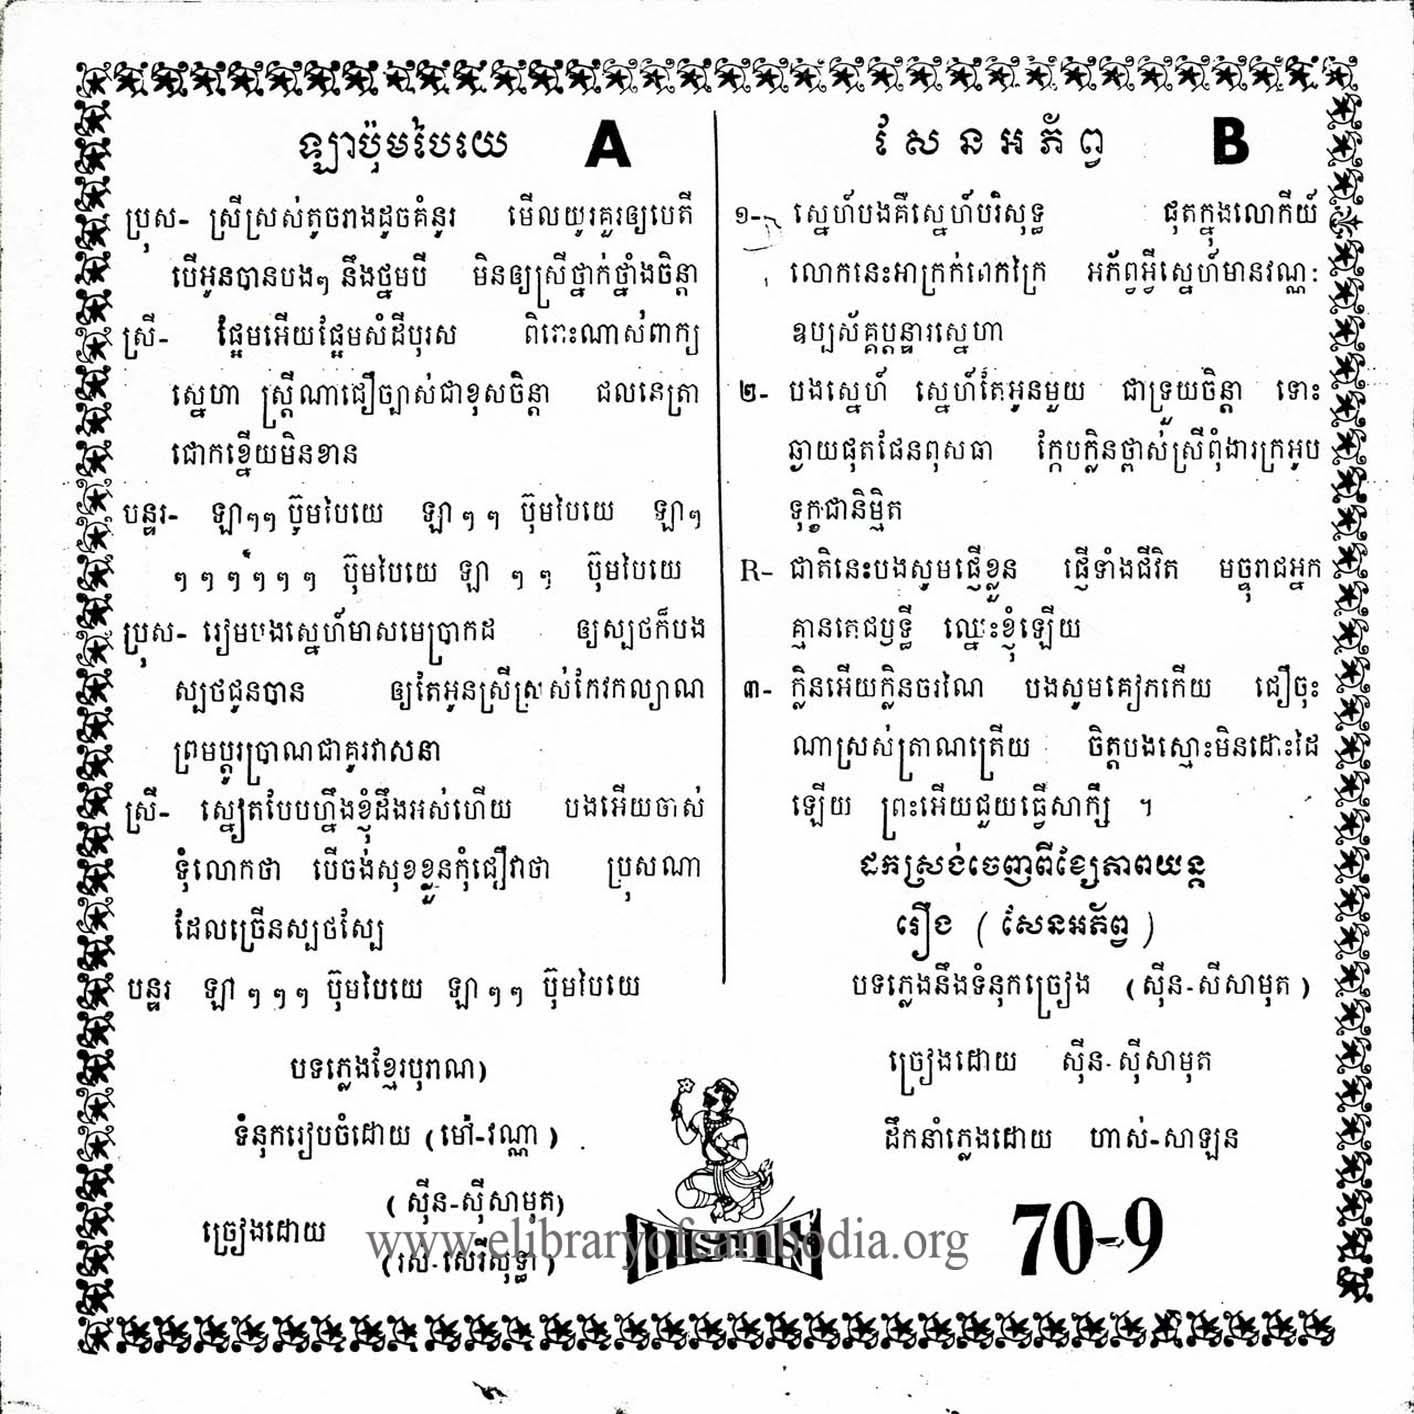 ឡាប៊ុមបៃយេ A
ប្រុស- ស្រីស្រស់តូចរាងដូចគំនូរ មើលយូរគួរឲ្យបេតី
បើអូនបានបងៗ នឹងថ្នមបី មិនឲ្យស្រីថ្នាក់ថ្នាំងចិន្តា
ស្រី- ផ្អែមអើយផ្អែមសំដីបុរស ពិរោះណាស់ពាក្យ
ស្នេហា ស្ត្រីណាជឿច្បាស់ជាខុសចិន្តា ជលនេត្រា
ជោកខ្នើយមិនខាន
បន្ទរ- ឡាៗៗ ប៊ុមបៃយេ ឡា ៗ ៗ ប៊ុមបៃយេ ឡាៗ
ៗ ៗ ៗ ៗ ៗ ៗ ប៊ុមបៃយេ ឡា ៗ ៗ ប៊ុមបៃយេ
ប្រុស- រៀមបងស្នេហ៍មាសមេប្រាកដ ឲ្យស្បថក៏បង
ស្បថជូនបាន ឲ្យតែអូនស្រីស្រស់កែវកល្យាណ
ព្រមប្តូរប្រាណជាគូរវាសនា
ស្រី- ស្នៀតបែបហ្នឹងខ្ញុំដឹងអស់ហើយ បងអើយចាស់
ទុំលោកថា បើចង់សុខខ្លួនកុំជឿវាថា ប្រុសណា
ដែលច្រើនស្បថស្បែ
បន្ទរ ឡា ៗ ៗ ៗ ប៊ុមបៃយេ ឡា ៗ ៗ ប៊ុមបៃយេ
បទភ្លេងខ្មែរបុរាណ)
ទំនុករៀបចំដោយ (ម៉ៅ-វណ្ណា)
ច្រៀងដោយ (ស៊ីន-ស៊ីសាមុត)
(រស់-សេរីសុទ្ធា)
សែនអភ័ព្វ B
១- ស្នេហ៍បងគឺស្នេហ៍បរិសុទ្ធ ផុតក្នុងលោកីយ៍
លោកនេះអាក្រក់ពេកក្រៃ អភ័ព្វអ្វីស្នេហ៍មានវណ្ណៈ
ឧប្បស័គ្គប្តន្ទារស្នេហា
២- បងស្នេហ៍ ស្នេហ៍តែអូនមួយ ជាទ្រួយចិន្តា ទោះ
ឆ្ងាយផុតផែនពុសធា ក្កែបក្លិនថ្ពាស់ស្រីពុំងារក្រអូប
ទុក្ខជានិម្មិត
R- ជាតិនេះបងសូមផ្ញើខ្លួន ផ្ញើទាំងជីវិត មច្ចុរាជអ្នក
គ្មានតេជឫទ្ធី ឈ្នះខ្ញុំឡើយ
៣- ក្លិនអើយក្លិនចរណៃ បងសូមគៀកកើយ ជឿចុះ
ណាស្រស់ត្រាណត្រើយ ចិត្តបងស្មោះមិនដោះដៃ
ឡើយ ព្រះអើយជួយធ្វើសាក្សី ។
ដកស្រង់ចេញពីខ្សែភាពយន្ត
រឿង (សែនអភ័ព្វ)
បទភ្លេងនឹងទំនុកច្រៀង (ស៊ីន-សីសាមុត)
ច្រៀងដោយ ស៊ីន-ស៊ីសាមុត
ដឹកនាំភ្លេងដោយ ហាស់-សាឡន
70-9
www.elibraryofcambodia.org